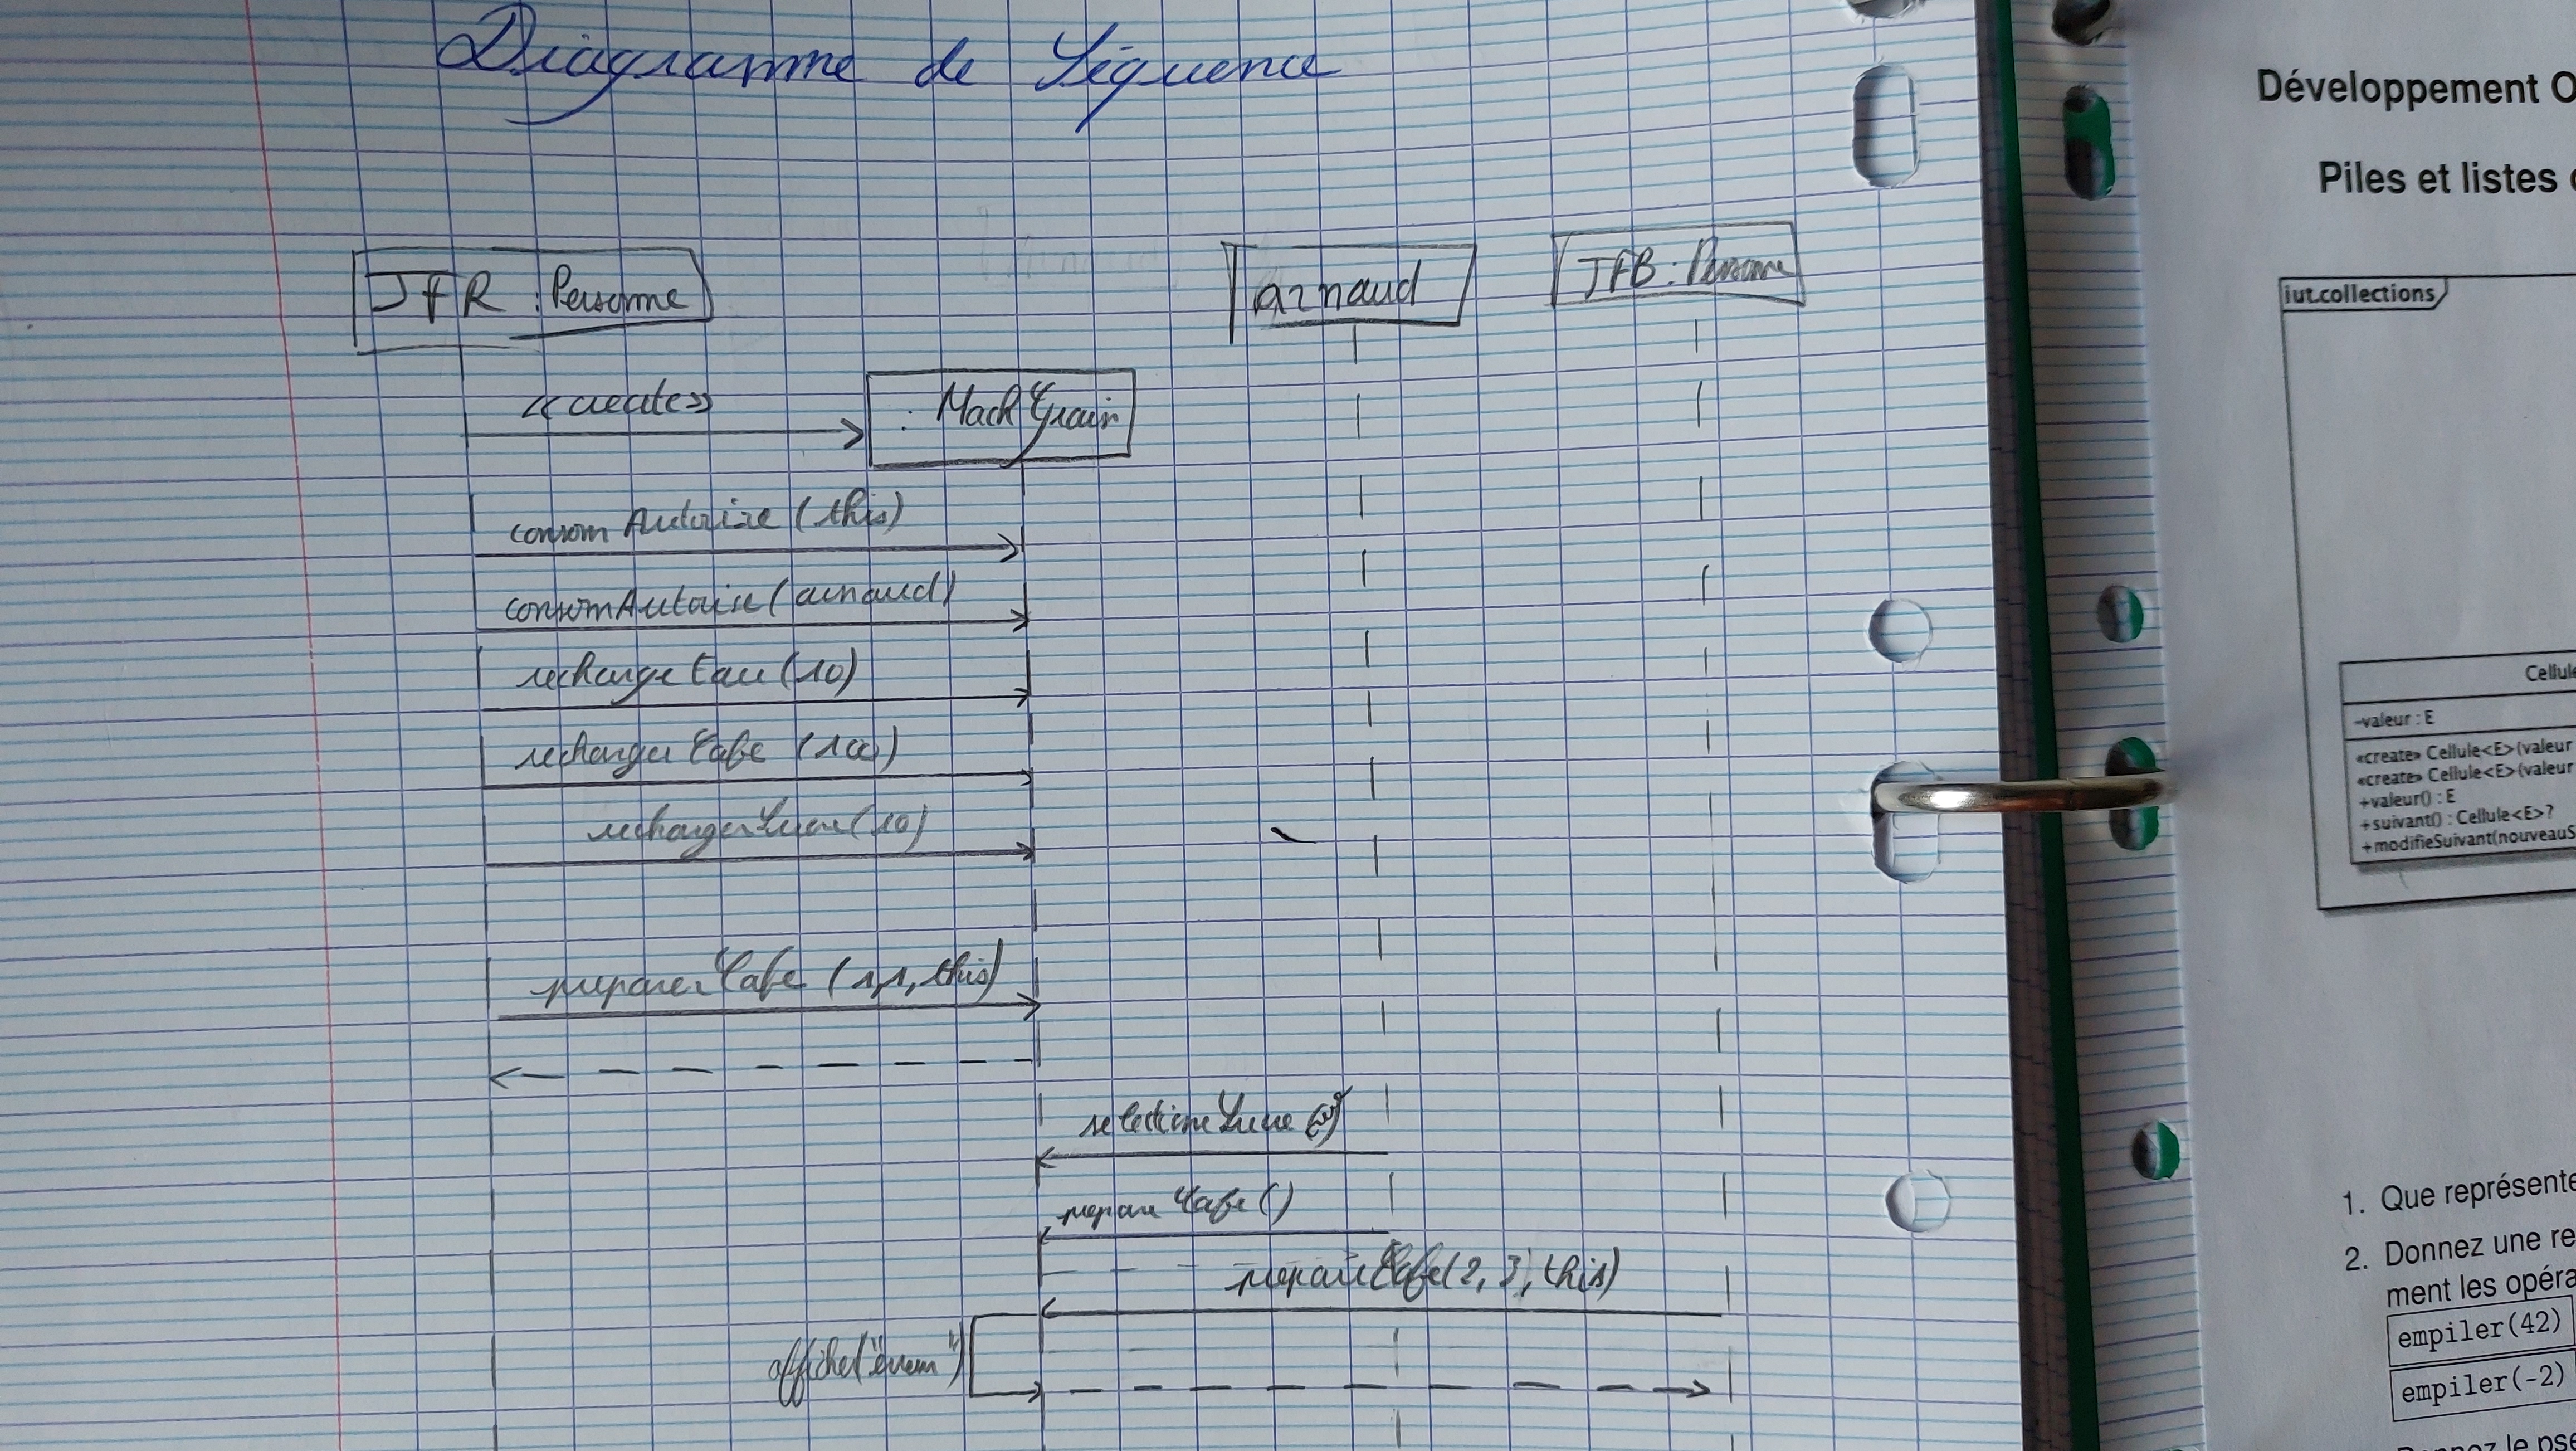 Diagramme de Séquence
JFR : Personne
arnaud
JFB : Personne
<<create>>
: MachGrain
consomAutorise (this)
consomAutorise (arnaud)
rechargeEau (10)
rechargerCafe (100)
rechargerSucre (10)
preparerCafe (1,1, this)
selectionneSucre
prepareCafe ()
prepareCafe (2, 3, this)
affiche("
Développement O
Piles et listes
iut.collections
Cellule
-valeur : E
«create» Cellule<E>(valeur
«create» Cellule<E>(valeur
+valeur() : E
+suivant() : Cellule<E>?
+modifieSuivant(nouveauS
1. Que représente
2. Donnez une re
ment les opéra
empiler(42)
empiler(-2)